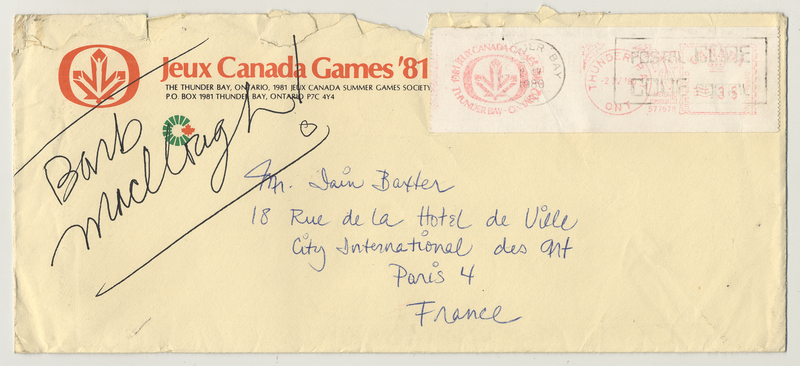 Jeux Canada Games '81
THE THUNDER BAY, ONTARIO, 1981 JEUX CANADA SUMMER GAMES SOCIETY
P.O. BOX 1981 THUNDER BAY, ONTARIO P7C 4Y4
Barb
1981 JEUX CANADA GAMES
THUNDER BAY - ONTARIO
THUNDER
ONT
POSTAL CODE
577679
Mr. Iain Baxter
18 Rue de La Hotel de Ville
City International des Art
Paris 4
France